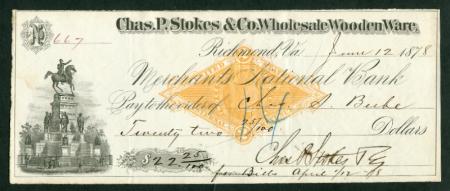 Chas. P. Stokes & Co. Wholesale Wooden Ware.
No 667
Richmond, Va. June 12 1878
Merchants National Bank
Pay to the order of Chas S
Twenty two 25/100 Dollars
$22 25/100
Chas P Stokes
from Bill April /12